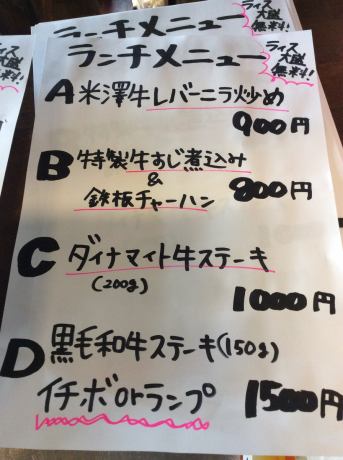 ランチメニュー
ライス
大盛
無料!
ランチメニュー
ライス
大盛
無料!
A 米澤牛レバーニラ炒め
900円
B 特製牛すじ煮込み
&
鉄板チャーハン 800円
C ダイナマイト牛ステーキ
(200g)
1000円
D 黒毛和牛ステーキ(150g)
イチボorランプ 1500円